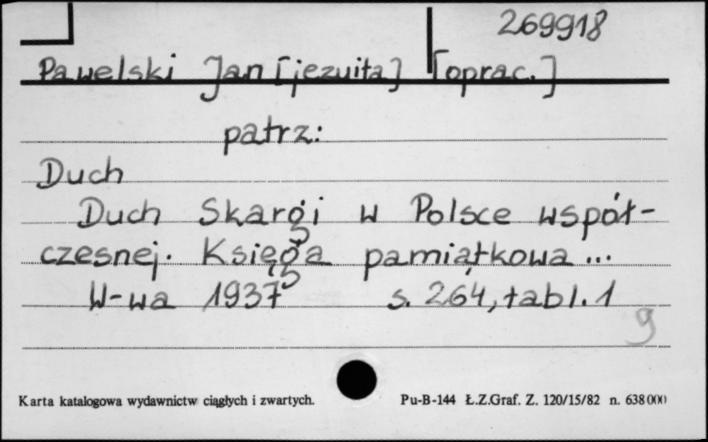 269918
Pawelski Jan [jezuita] [oprac.]
patrz:
Duch
Duch Skargi w Polsce współ-
czesnej. Księga pamiątkowa...
W-wa 1937 s. 264, tabl. 1
9
Karta katalogowa wydawnictw ciągłych i zwartych. Pu-B-144 Ł.Z.Graf. Z. 120/15/82 n. 638000